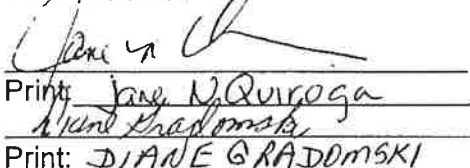 Jane N
Print: Jane N. Quiroga
Diane Gradomski
Print: DIANE GRADOMSKI